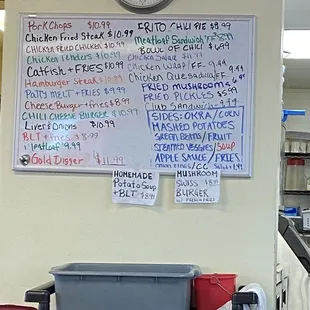 Pork Chops $10.99
Chicken Fried Steak $10.99
Chicken Fried Chicken $10.99
Chicken Tenders $10.99
Catfish + Fries $10.99
Hamburger Steak $10.99
Patty Melt + Fries $9.99
Cheese Burger + Fries $8.99
Chili Cheese Burger $10.99
Liver & Onions $10.99
BLT + Fries $8.99
Meatloaf 9.99
Gold Digger $11.99
Frito Chili Pie $9.99
Meatloaf Sandwich
Bowl of Chili $6.99
Chicken Salad
Chicken Wrap + FF
Chicken Quesadilla FF
Fried Mushrooms 6.99
Fried Pickles $5.99
Club Sandwich 9.99
Sides: Okra / Corn
Mashed Potatoes
Green Beans / Fruit
Steamed Veggies / Soup
Apple Sauce / Fries
HOMEMADE
Potato Soup
+ BLT $8.99
MUSHROOM
SWISS
BURGER